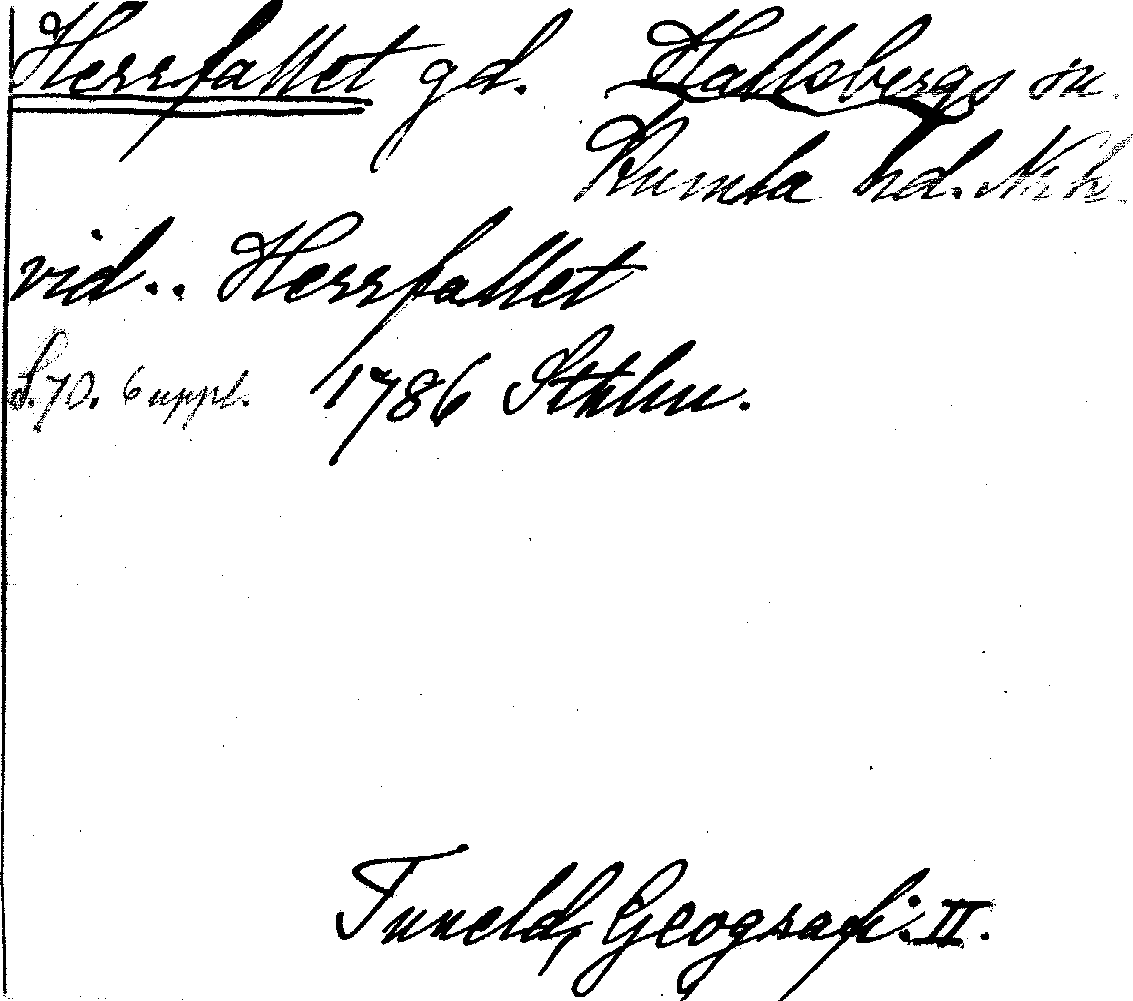 Herrfallet gd. Hallsbergs sn.
Kumla hd. Nrk.
vid.. Herrfallet
S. 70. 6 uppl. 1786 Sthlm.
Tuneld, Geografi. II.